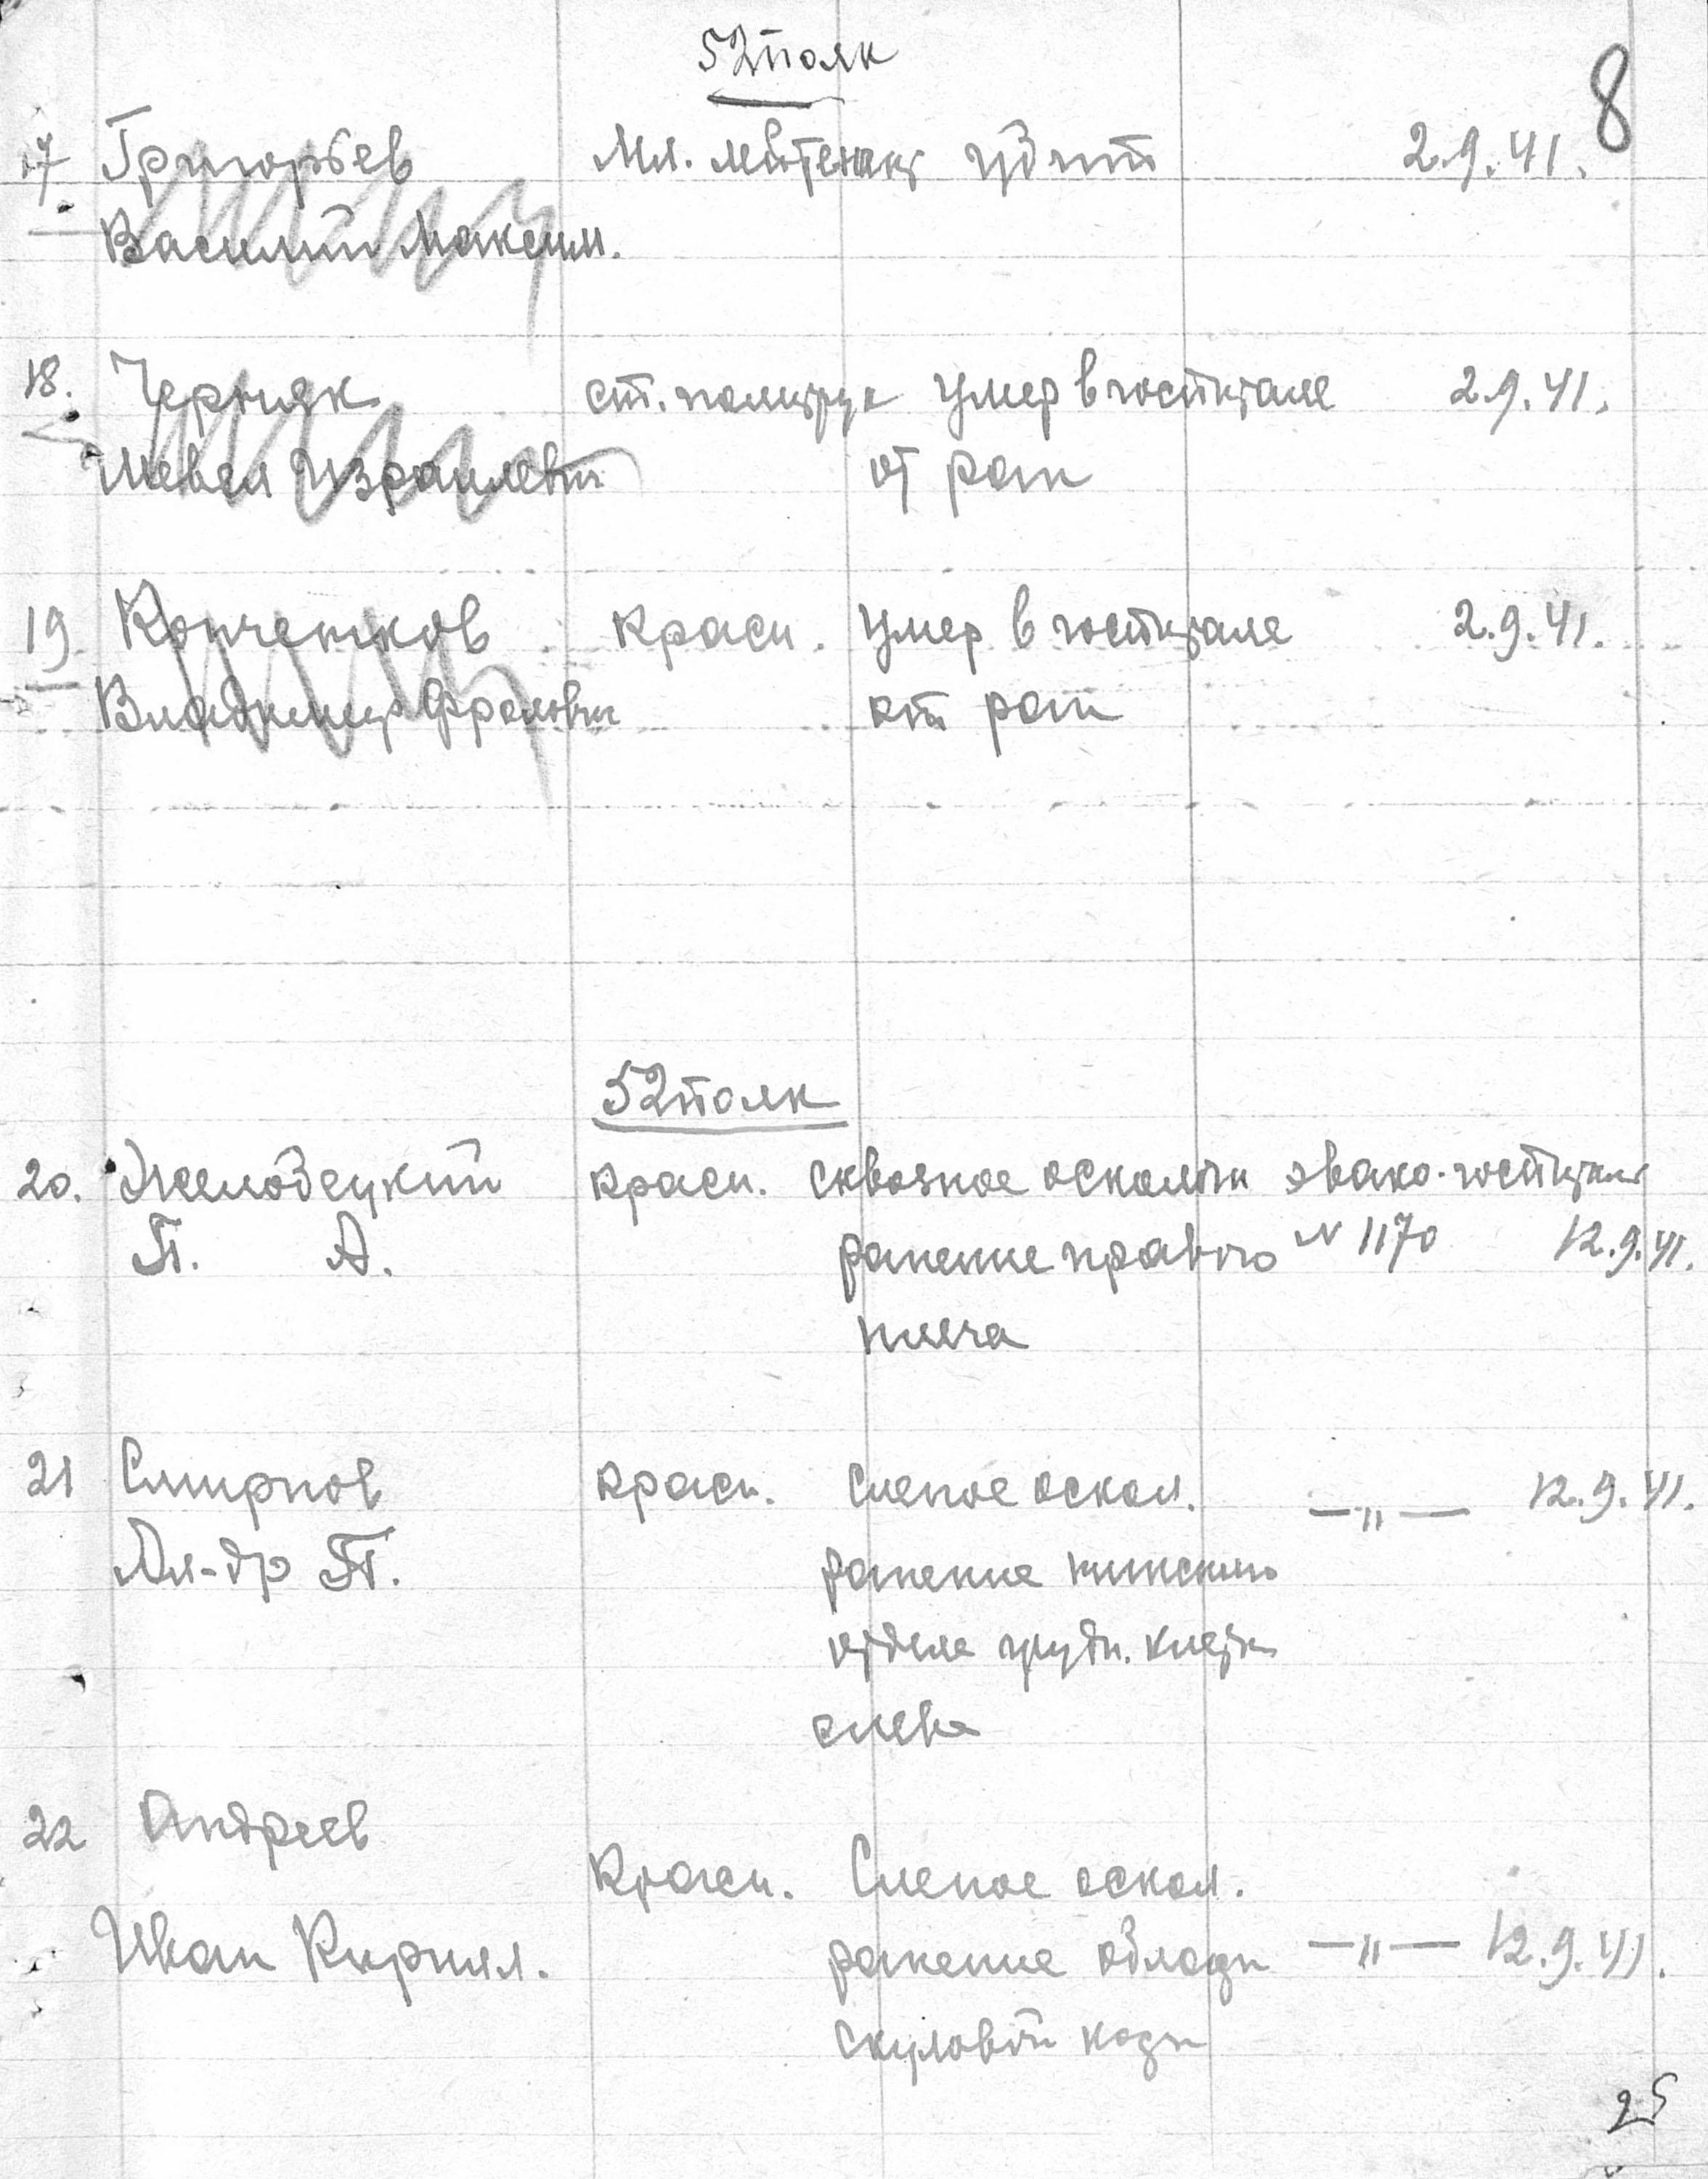 52 полк
8
17 Григорьев Мл. лейтенант убит 2.9.41.
Василий Максим.
18. Черняк ст. политрук умер в госпитале 2.9.41.
Шевел Израилевич от ран
19 Копченков красн. умер в госпитале 2.9.41.
Владимир Фролович от ран
52 полк
20. красн. сквозное осколочн эвако-госпиталь
П. А. ранение правого N 1170 12.9.41.
плеча
21 Смирнов красн. слепое оскол. —"— 12.9.41.
Ал-др П. ранение
отдела грудн. клетки
слева
22 Андреев
красн. Слепое оскол.
Иван Кирилл. ранение области —"— 12.9.41.
скуловой кости
25